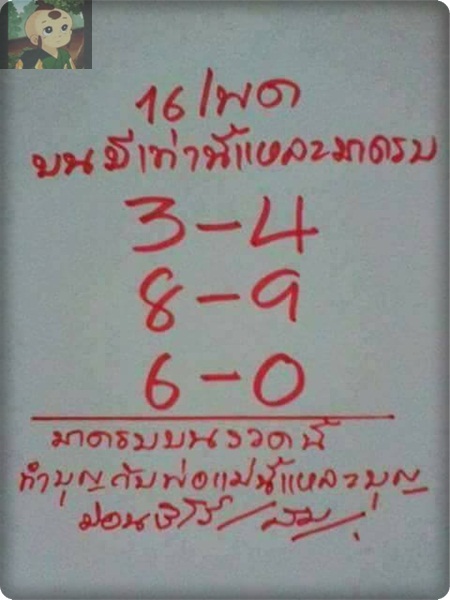 16/พค
บนมีเท่านี้แหละมาครบ
3-4
8-9
6-0
มาครบบนงวดนี้
ทำบุญกับพ่อแม่นี้แหละบุญ